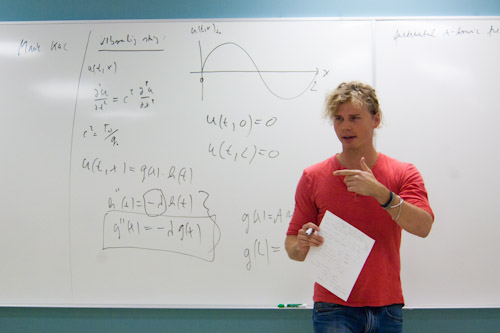 Mark Kac
vibrating string:
u(t,x)
∂²u/∂t² = c² ∂²u/∂x²
c² = T₀/ρ₀
u(t,x) = g(x)·h(t)
h''(t) = -λ h(t)
g''(x) = -λ g(x)
0
x
L
u(t,0)=0
u(t,L)=0
g(x)=A
g(L)=